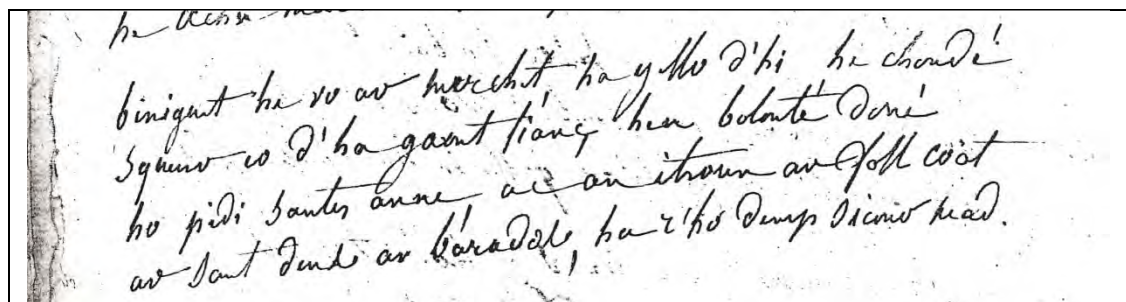 binignet he vo ar merchet, ha yello d'hi he choudé
squeuv eo d'ha gaout fianç hen bolonté doué
ho pidi santes anne ac an itroun ar foll coat
ar sant deus ar baradoes, ha r'ho demp sicour mad.